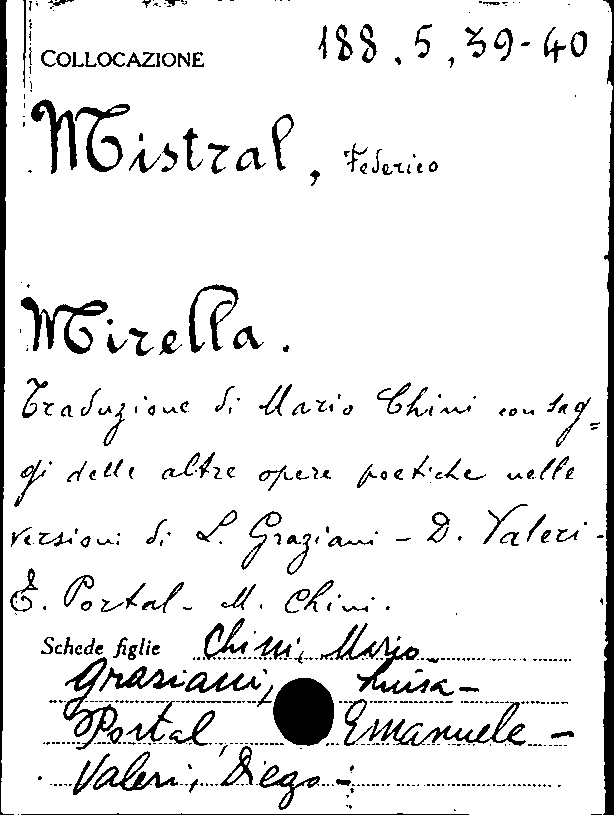 COLLOCAZIONE 188.5.39-40
Mistral, Federico
Mirella.
Traduzione di Mario Chini con sag=
gi delle altre opere poetiche nelle
versioni di L. Graziani - D. Valeri -
E. Portal - M. Chini.
Schede figlie Chini, Mario
Graziani, Luisa -
Portal, Emanuele -
Valeri, Diego -